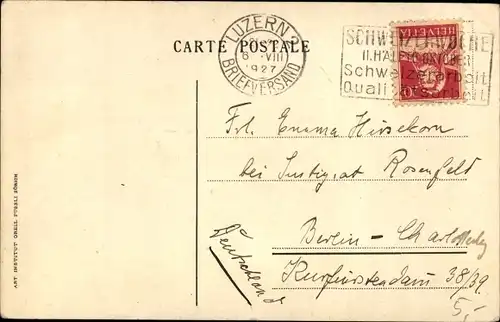 LUZERN 2
6. VIII
1927
BRIEFVERSAND
CARTE POSTALE
SCHWEIZERWOCHE
II. HÄLFTE OKTOBER
Schweizerarbeit
Qualitätsarbeit
HELVETIA
Frl. Emma Hirsekorn
bei Justizrat Rosenfeld
Berlin – Charlottenbg
Kurfürstendam 38/39
Deutschland
5,-
ART. INSTITUT ORELL FÜSSLI ZÜRICH